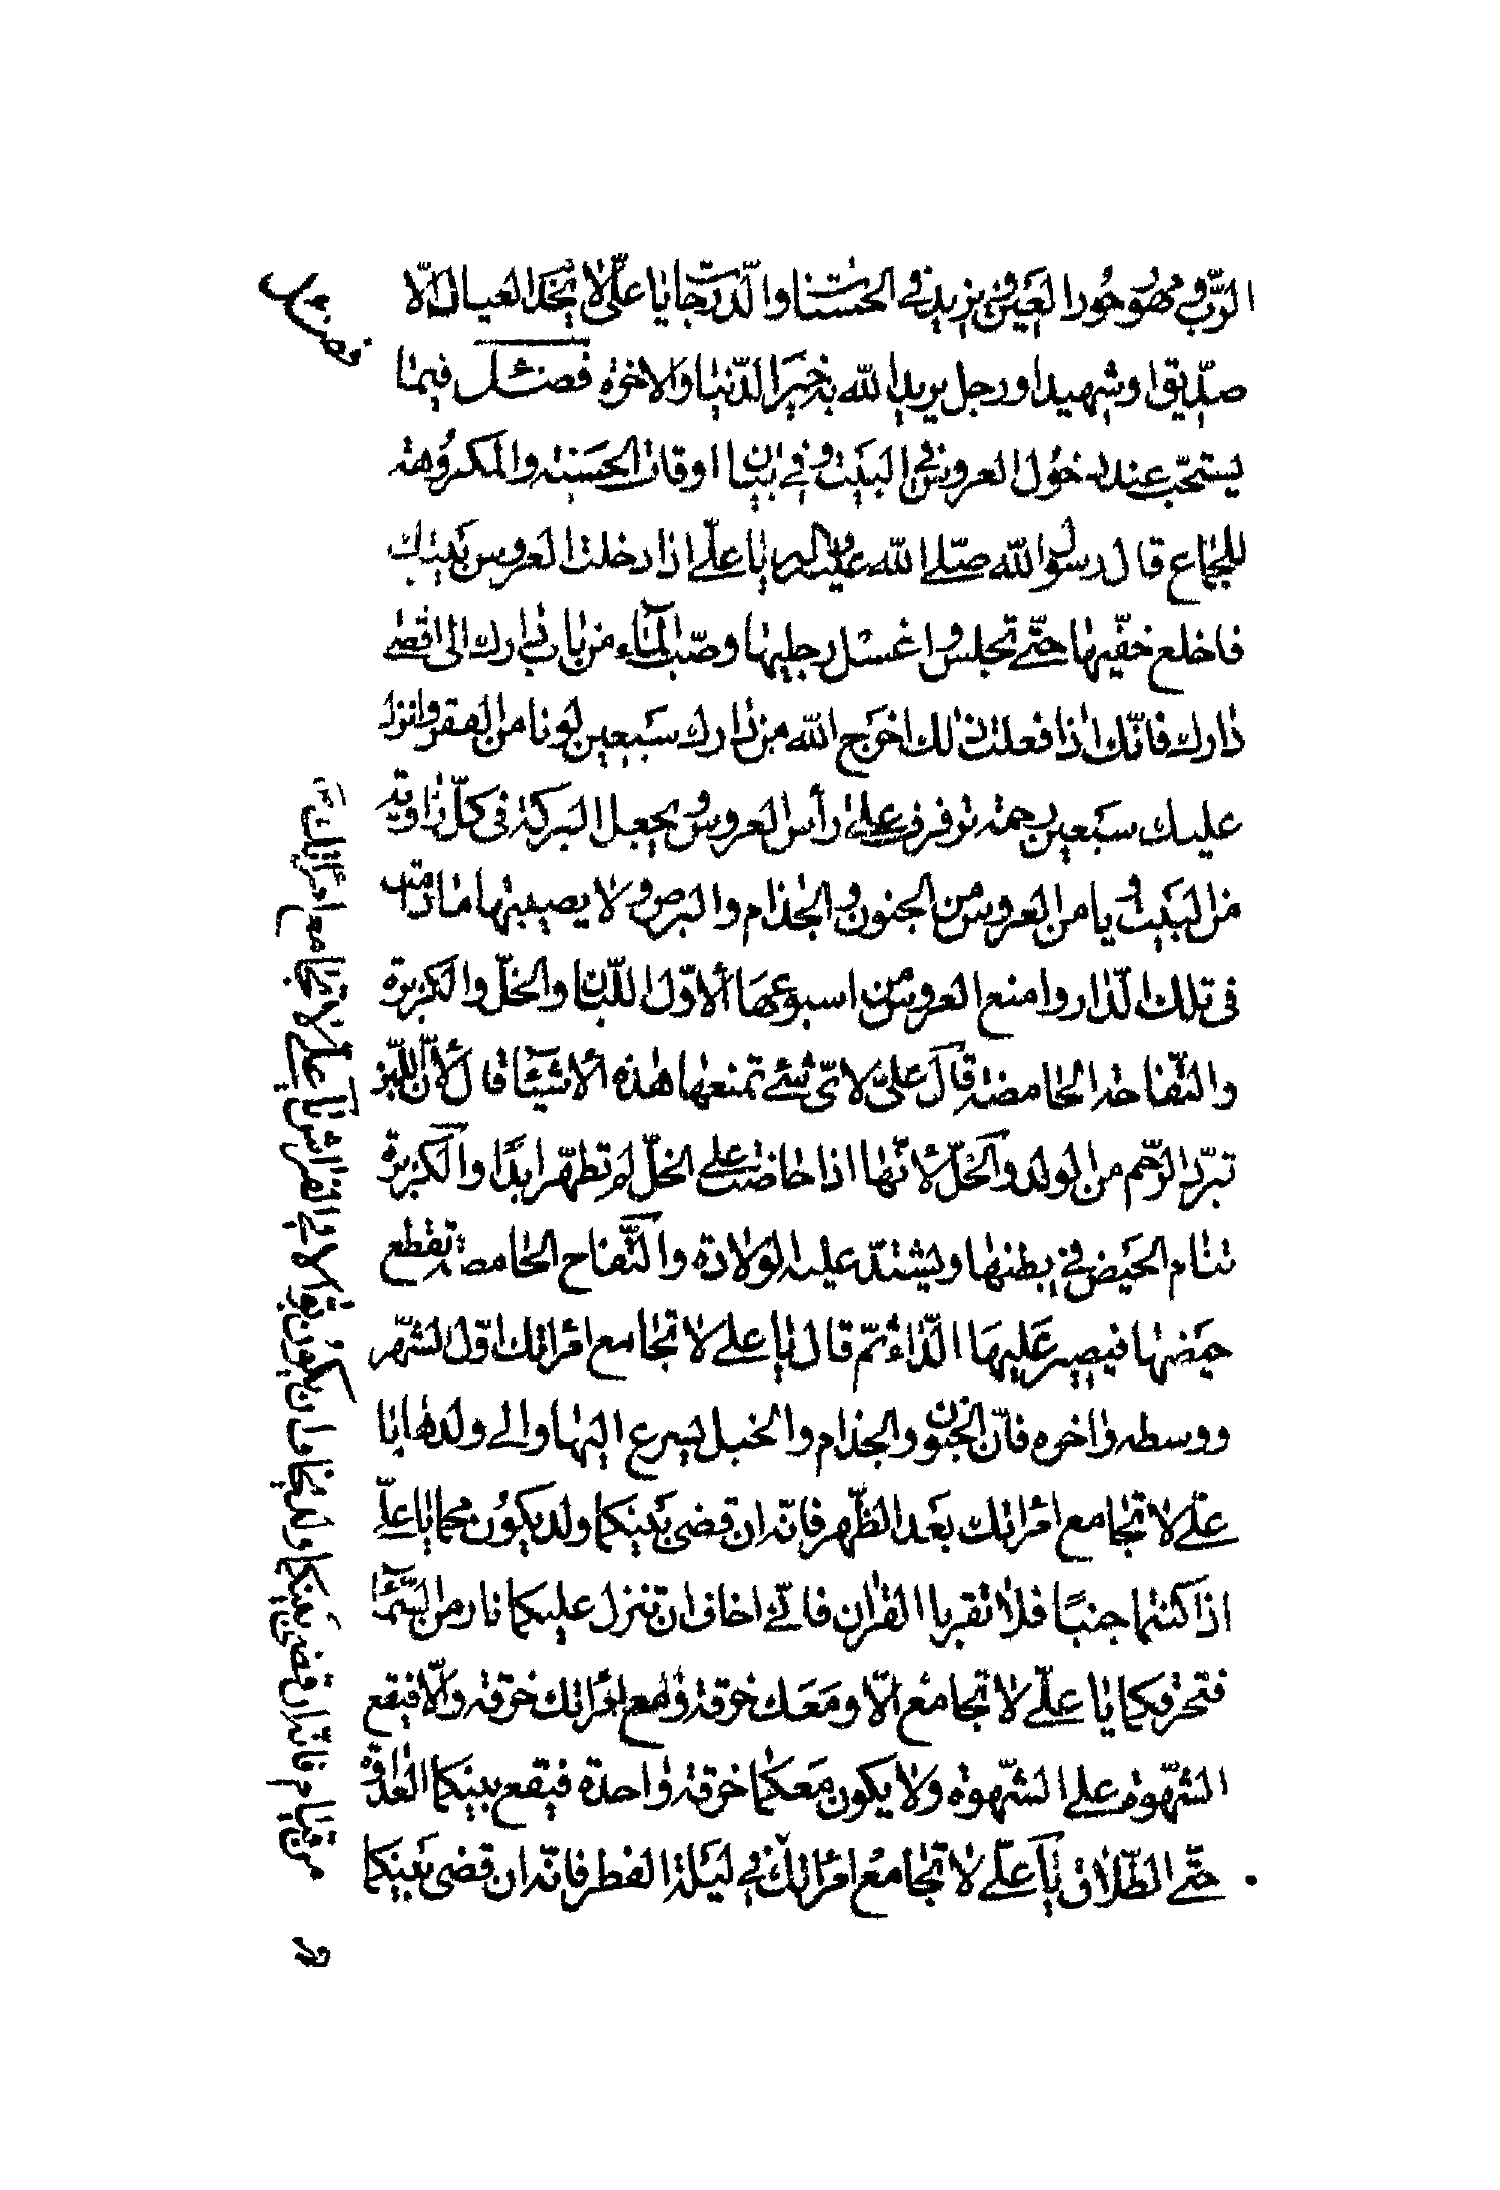 الرّب ومهور حور العين ويزيد في الحسنات والدّرجات يا علّى لا يخدم العيال الّا
صدّيق او شهيد او رجل يريد الله به خير الدّنيا والاخرة فصل فيما
يستحّب عند دخول العروس في البيت وفي بيان اوقات الحسنة والمكروهة
للجماع قال رسول الله صلّى الله عليه واله يا علّى اذا دخلت العروس بيتك
فاخلع خفّيها حتّى تجلس واغسل رجليها وصبّ الماء من باب دارك الى اقصى
دارك فانّك اذا فعلت ذلك اخرج الله من دارك سبعين لونا من الفقر وانزل
عليك سبعين رحمة ترفرف على رأس العروس ويجعل البركة في كلّ زاوية
من البيت ويامن العروس من الجنون والجذام والبرص ولا يصيبها ما دامت
في تلك الدّار وامنع العروس من اسبوعها الاوّل اللّبان والخلّ والكزبرة
والتّفاحة الحامضة قال علىّ لاىّ شئ تمنعها هذه الاشياء قال لانّ اللّبن
تبرّد الرّحم من الولد والخلّ لانّها اذا حاضت على الخلّ لم تطهّر ابدًا والكزبرة
تنام الحيض في بطنها ويشتدّ عليه الولادة والتّفاح الحامضة تقطع
حيضها فيصير عليها الدّاء ثمّ قال يا على لا تجامع امراتك اوّل الشّهر
ووسطه واخره فانّ الجنون والجذام والخبل يسرع اليها والى ولدها يا
علّى لا تجامع امراتك بعد الظّهر فانّه ان قضى بينكما ولد يكون مجما يا علّى
اذا كنتما جنبًا فلا تقربا القران فانّى اخاف ان تنزل عليكما نار من السّماء
فتحرقكما يا علّى لا تجامع الّا ومعك خرقة ومع امراتك خرقة والّا فيقع
الشّهوة على الشّهوة ولا يكون معكما خرقة واحدة فيقع بينكما العداوة
حتّى الطّلاق يا علّى لا تجامع امراتك في ليلة الفطر فانّه ان قضى بينكما
من قيام فانّه ان قضى بينكما ولد يكون بوّالا في الفراش يا على لا تجامع امراتك